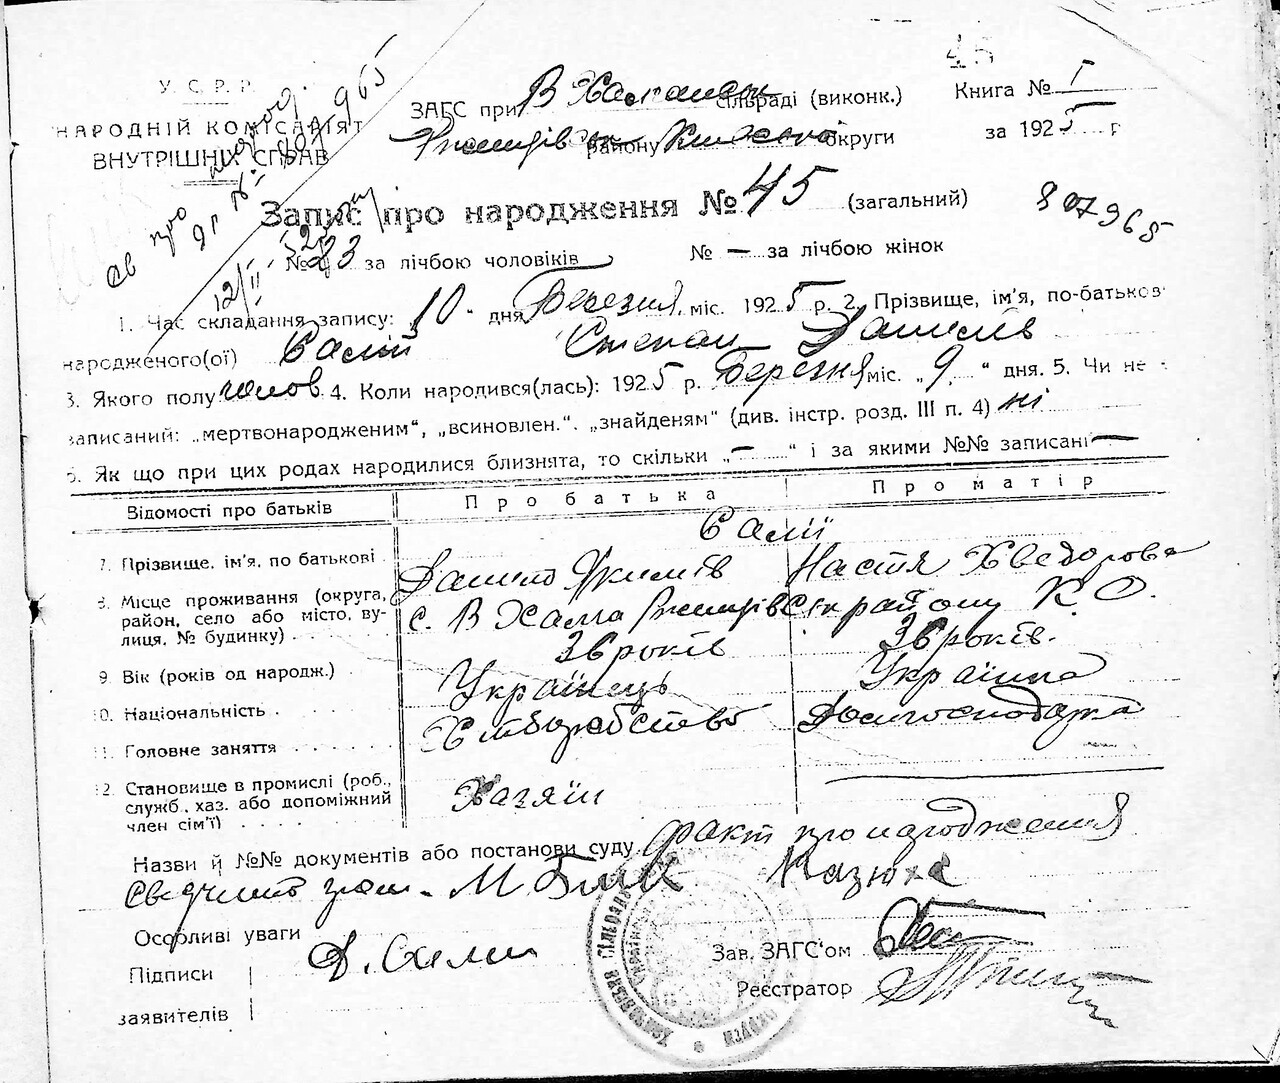 45
У. С. Р. Р.
НАРОДНІЙ КОМІСАРІЯТ
ВНУТРІШНІХ СПРАВ
ЗАГС при В Хам сільраді (виконк.)
району округи
Книга № 1
за 1925 г
св про народ.
91 № 807965
12/II
Запис про народження № 45 (загальний)
807965
№ 23 за лічбою чоловіків № — за лічбою жінок
1. Час складання запису: 10 дня Березня міс. 1925 р. 2. Прізвище, ім'я, по-батьков
народженого(ої) Салій Степан Данилів
3. Якого полу чолов. 4. Коли народився(лась): 1925 р. Березня міс. „9 “ дня. 5. Чи не
записаний: „мертвонародженим“, „всиновлен.“. „знайденям“ (див. інстр. розд. III п. 4) ні
6. Як що при цих родах народилися близнята, то скільки „—“ і за якими №№ записані —
Відомості про батьків
Про батька
Про матір
Салії
7. Прізвище, ім'я, по батькові
Данило Якимів
Настя Хведорова
8. Місце проживання (округа,
район, село або місто, ву-
лиця, № будинку)
с. В Хама Ржищівськ району К. О.
9. Вік (років од народж.)
36 років
36 років.
10. Національність
Українець
Українка
11. Головне заняття
Хліборобство
Домогосподарка
12. Становище в промислі (роб.,
служб., хаз. або допоміжний
член сім'ї)
Хазяїн
Назви й №№ документів або постанови суду факт про народження
свідчить гром. М Казюка
Особливі уваги
Підписи
заявителів
Д. Салій
Зав. ЗАГС'ом
Реєстратор